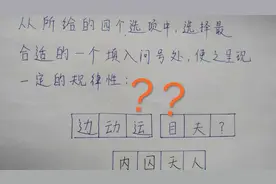 从所给的四个选项中,选择最
合适的一个填入问号处,使之呈现
一定的规律性:
??
边动运 目夫?
内囚天人